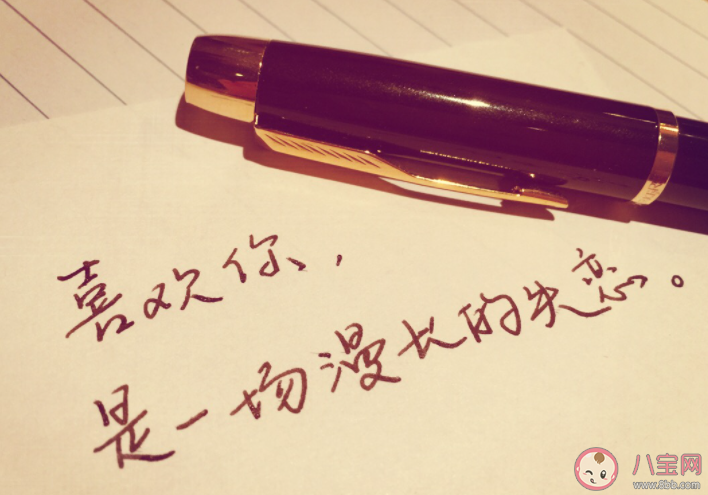 喜欢你，
是一场漫长的失恋。
八宝网
www.8bb.com